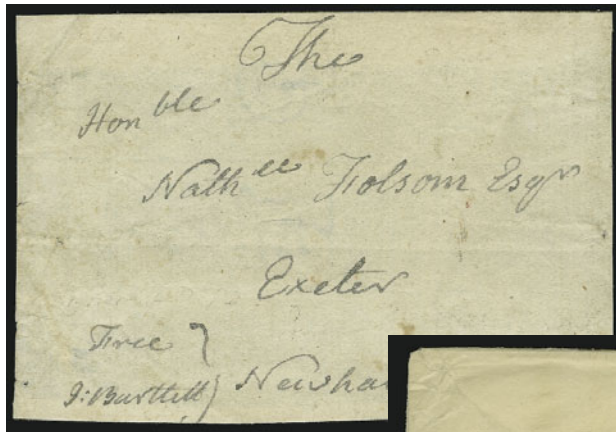 The
Honble
Nathll Folsom Esqr
Exeter
Free
J: Bartlett